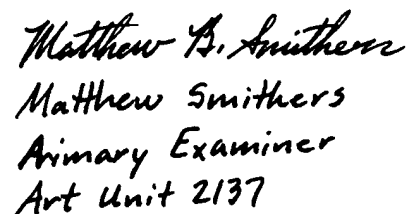 Matthew B. Smithers
Matthew Smithers
Primary Examiner
Art Unit 2137